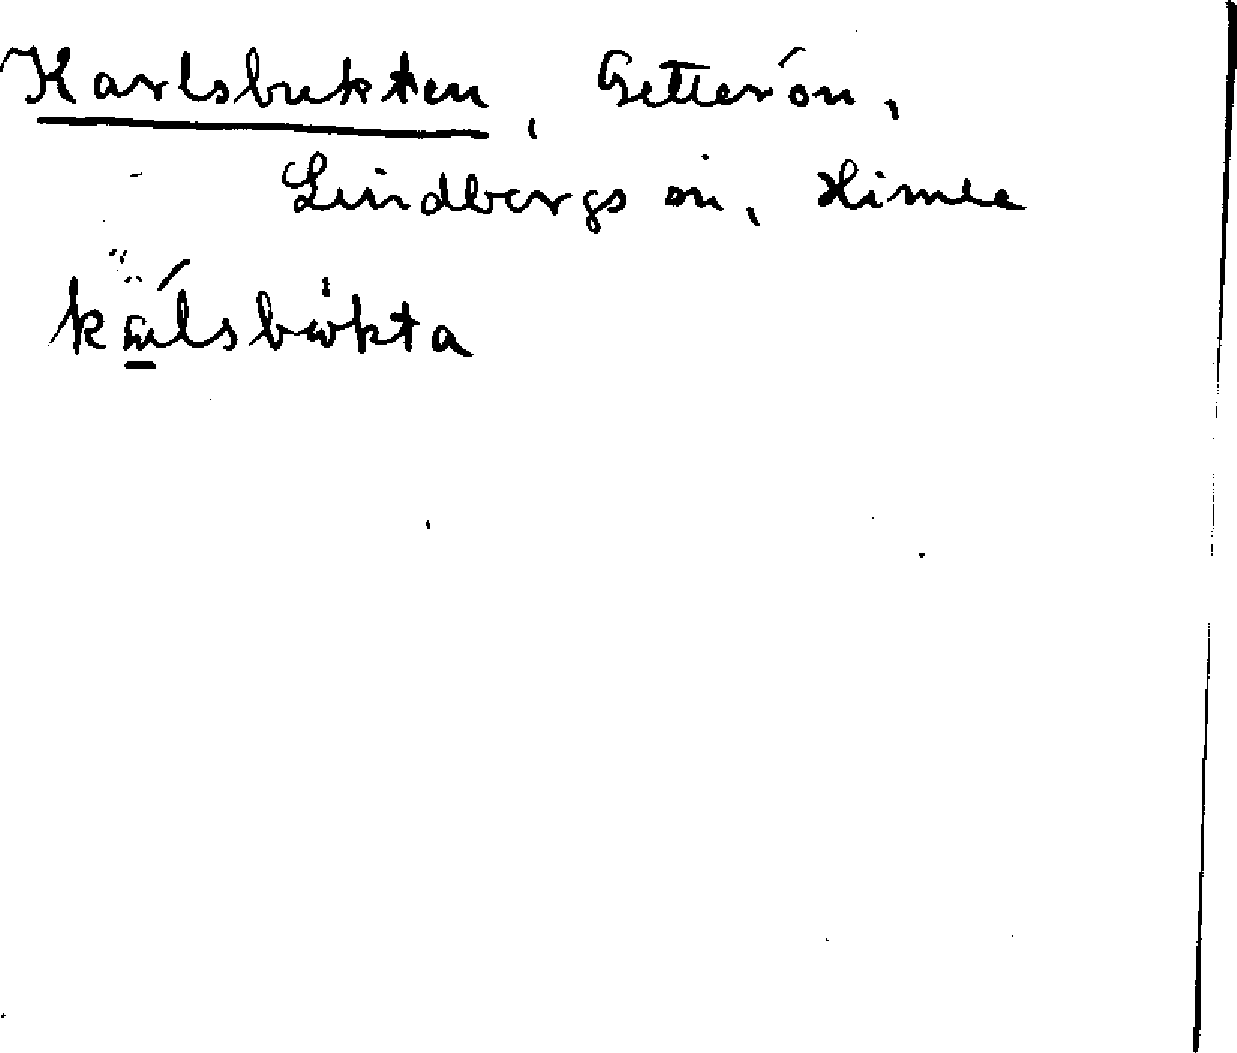 Karlsbukten, Getterön,
Lindbergs sn, Himle
kálsbẁkta